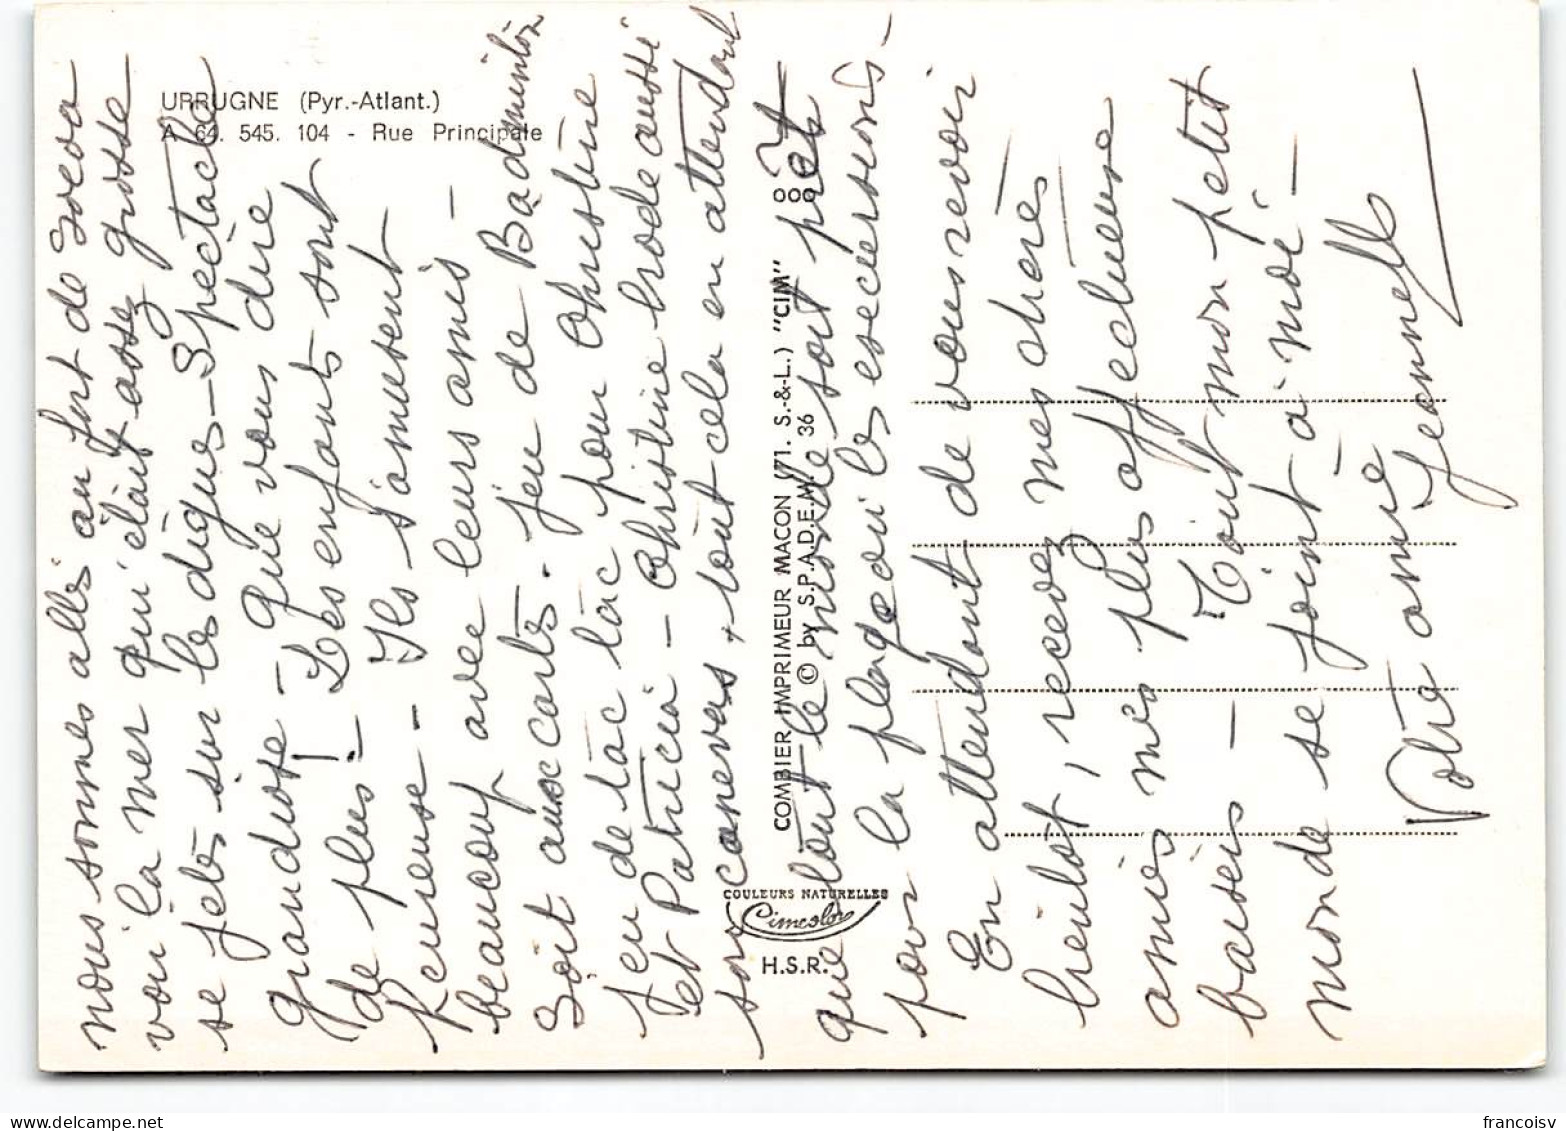 URRUGNE (Pyr.-Atlant.)
A. 64. 545. 104 - Rue Principale
nous sommes allés au fort de Socoa
voir la mer qui était assez grosse
se jeter sur les digues - Spectacle
grandiose - Que vous dire
de plus ! Les enfants sont
heureuse - Ils s'amusent
beaucoup avec leurs amis -
Soit aux cartes - jeu de Badminton
jeu de lac pour Christine
et Patricia - Christine brode aussi
son canevas + tout cela en attendant
que tout le monde soit prêt
pour la plage ou les excurssions -
En attendant de vous revoir
bientôt, recevez mes chères
amies mes plus affectueuse
baisers - Tout mon petit
monde se joint à moi -
Votre amie
Jeannette
COMBIER IMPRIMEUR MACON (71. S.-&-L.) "CIM"
© by S.P.A.D.E.M. 36
COULEURS NATURELLES
Cimcolor
H.S.R.
francoisv